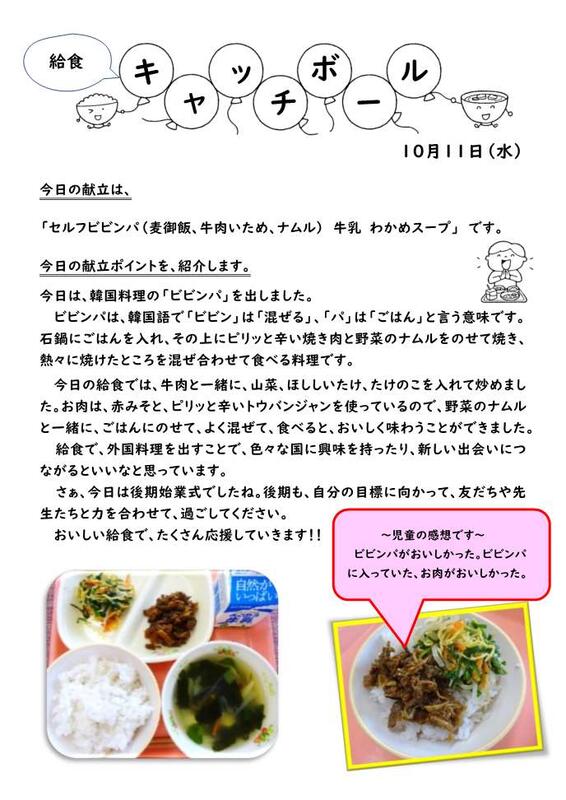 給食
キャッチボール
10月11日(水)
今日の献立は、
「セルフビビンパ(麦御飯、牛肉いため、ナムル) 牛乳 わかめスープ」 です。
今日の献立ポイントを、紹介します。
今日は、韓国料理の「ビビンパ」を出しました。
ビビンパは、韓国語で「ビビン」は「混ぜる」、「パ」は「ごはん」と言う意味です。
石鍋にごはんを入れ、その上にピリッと辛い焼き肉と野菜のナムルをのせて焼き、
熱々に焼けたところを混ぜ合わせて食べる料理です。
今日の給食では、牛肉と一緒に、山菜、ほししいたけ、たけのこを入れて炒めまし
た。お肉は、赤みそと、ピリッと辛いトウバンジャンを使っているので、野菜のナムル
と一緒に、ごはんにのせて、よく混ぜて、食べると、おいしく味わうことができました。
給食で、外国料理を出すことで、色々な国に興味を持ったり、新しい出会いにつ
ながるといいなと思っています。
さぁ、今日は後期始業式でしたね。後期も、自分の目標に向かって、友だちや先
生たちと力を合わせて、過ごしてください。
おいしい給食で、たくさん応援していきます!!
～児童の感想です～
ビビンパがおいしかった。ビビンパ
に入っていた、お肉がおいしかった。
自然が
いっぱい